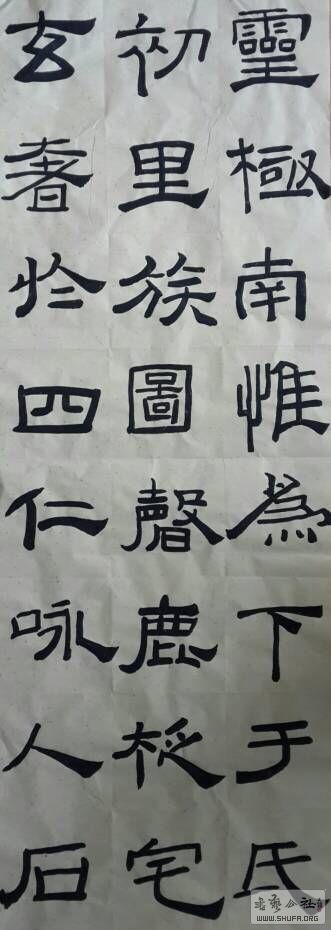 靈極南惟為下于氏
初里族圖聲鹿柉宅
玄奢於四仁咏人石
書藝公社
WWW.SHUFA.ORG